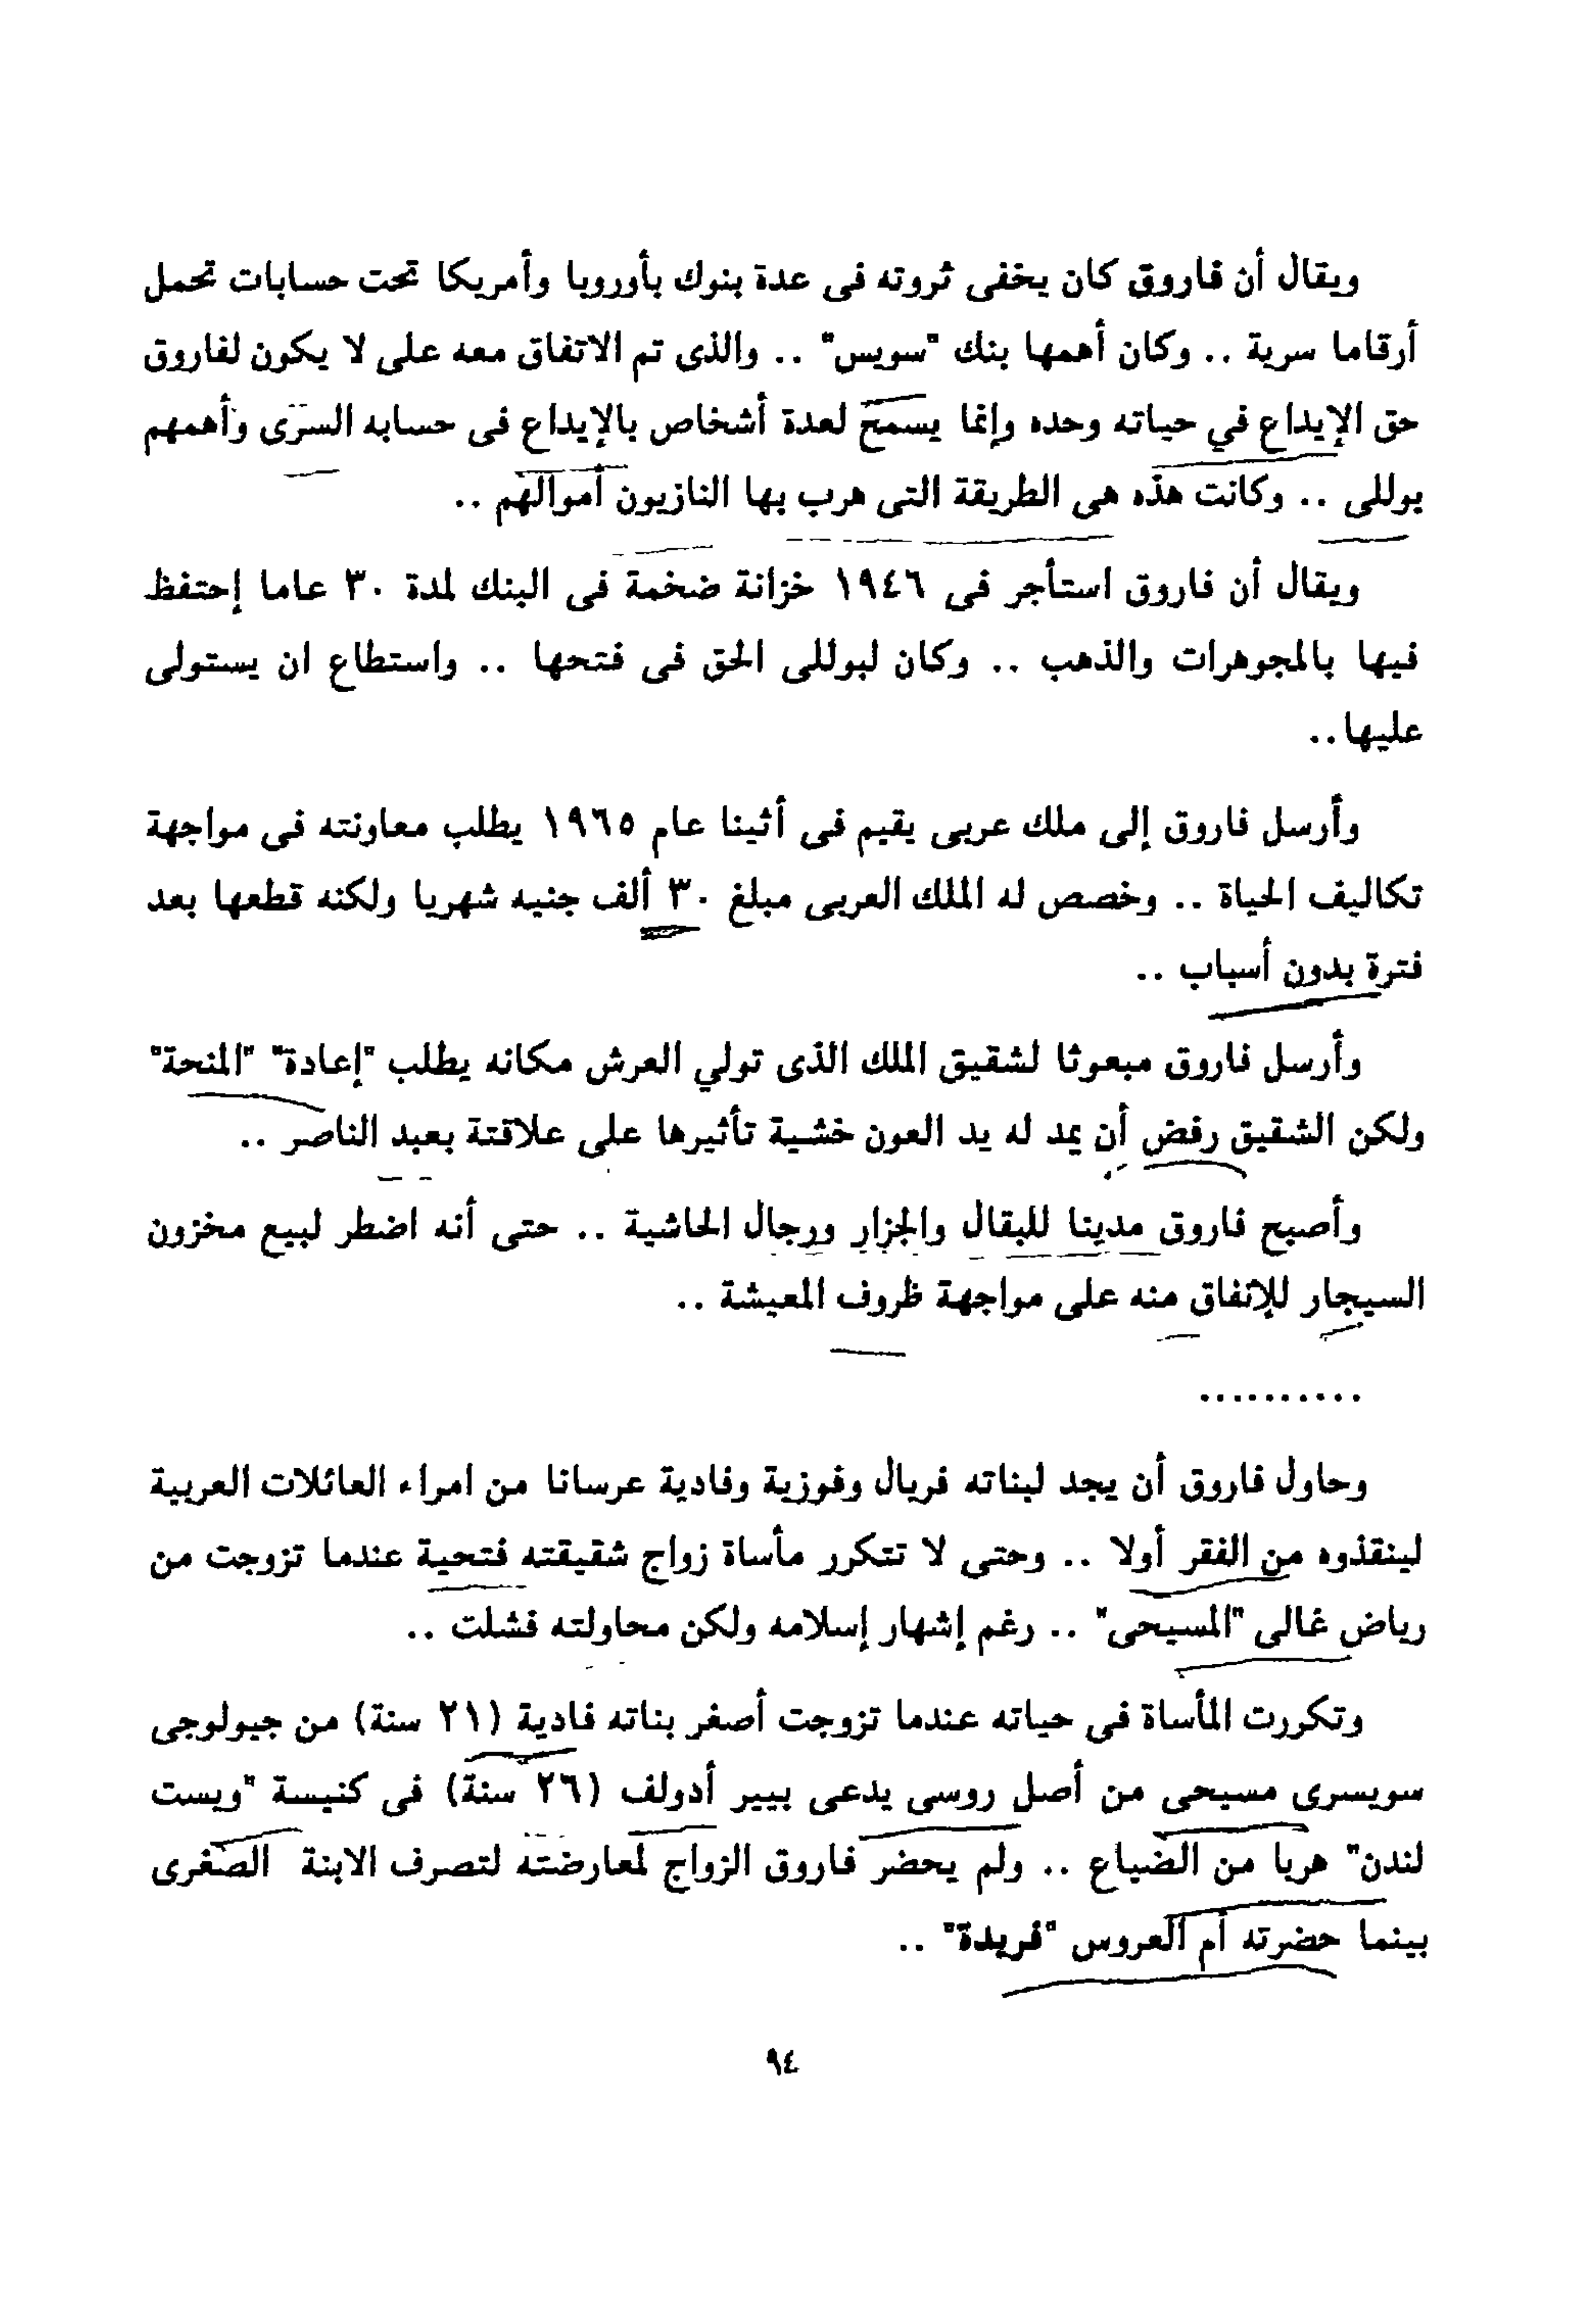 ويقال أن فاروق كان يخفى ثروته فى عدة بنوك بأوروبا وأمريكا تحت حسابات تحمل
أرقاما سرية .. وكان أهمها بنك "سويس" .. والذى تم الاتفاق معه على لا يكون لفاروق
حق الإيداع في حياته وحده وإنما يسمح لعدة أشخاص بالإيداع فى حسابه السرى وأهمهم
بوللى .. وكانت هذه هى الطريقة التى هرب بها النازيون أموالهم ..
ويقال أن فاروق استأجر فى ١٩٤٦ خزانة ضخمة فى البنك لمدة ٣٠ عاما إحتفظ
فيها بالمجوهرات والذهب .. وكان لبوللى الحق فى فتحها .. واستطاع ان يستولى
عليها ..
وأرسل فاروق إلى ملك عربى يقيم فى أثينا عام ١٩٦٥ يطلب معاونته فى مواجهة
تكاليف الحياة .. وخصص له الملك العربى مبلغ ٣٠ ألف جنيه شهريا ولكنه قطعها بعد
فترة بدون أسباب ..
وأرسل فاروق مبعوثا لشقيق الملك الذى تولي العرش مكانه يطلب "إعادة" "المنحة"
ولكن الشقيق رفض أن يمد له يد العون خشية تأثيرها على علاقتة بعبد الناصر ..
وأصبح فاروق مدينا للبقال والجزار ورجال الحاشية .. حتى أنه اضطر لبيع مخزون
السيجار للإنفاق منه على مواجهة ظروف المعيشة ..
..........
وحاول فاروق أن يجد لبناته فريال وفوزية وفادية عرسانا من امراء العائلات العربية
لينقذوه من الفقر أولا .. وحتى لا تتكرر مأساة زواج شقيقته فتحية عندما تزوجت من
رياض غالى "المسيحى" .. رغم إشهار إسلامه ولكن محاولته فشلت ..
وتكررت المأساة فى حياته عندما تزوجت أصغر بناته فادية (٢١ سنة) من جيولوجى
سويسرى مسيحى من أصل روسى يدعى بيير أدولف (٢٦ سنة) فى كنيسة "ويست
لندن" هربا من الضياع .. ولم يحضر فاروق الزواج لمعارضته لتصرف الابنة الصغرى
بينما حضرته أم العروس "فريدة" ..
٩٤